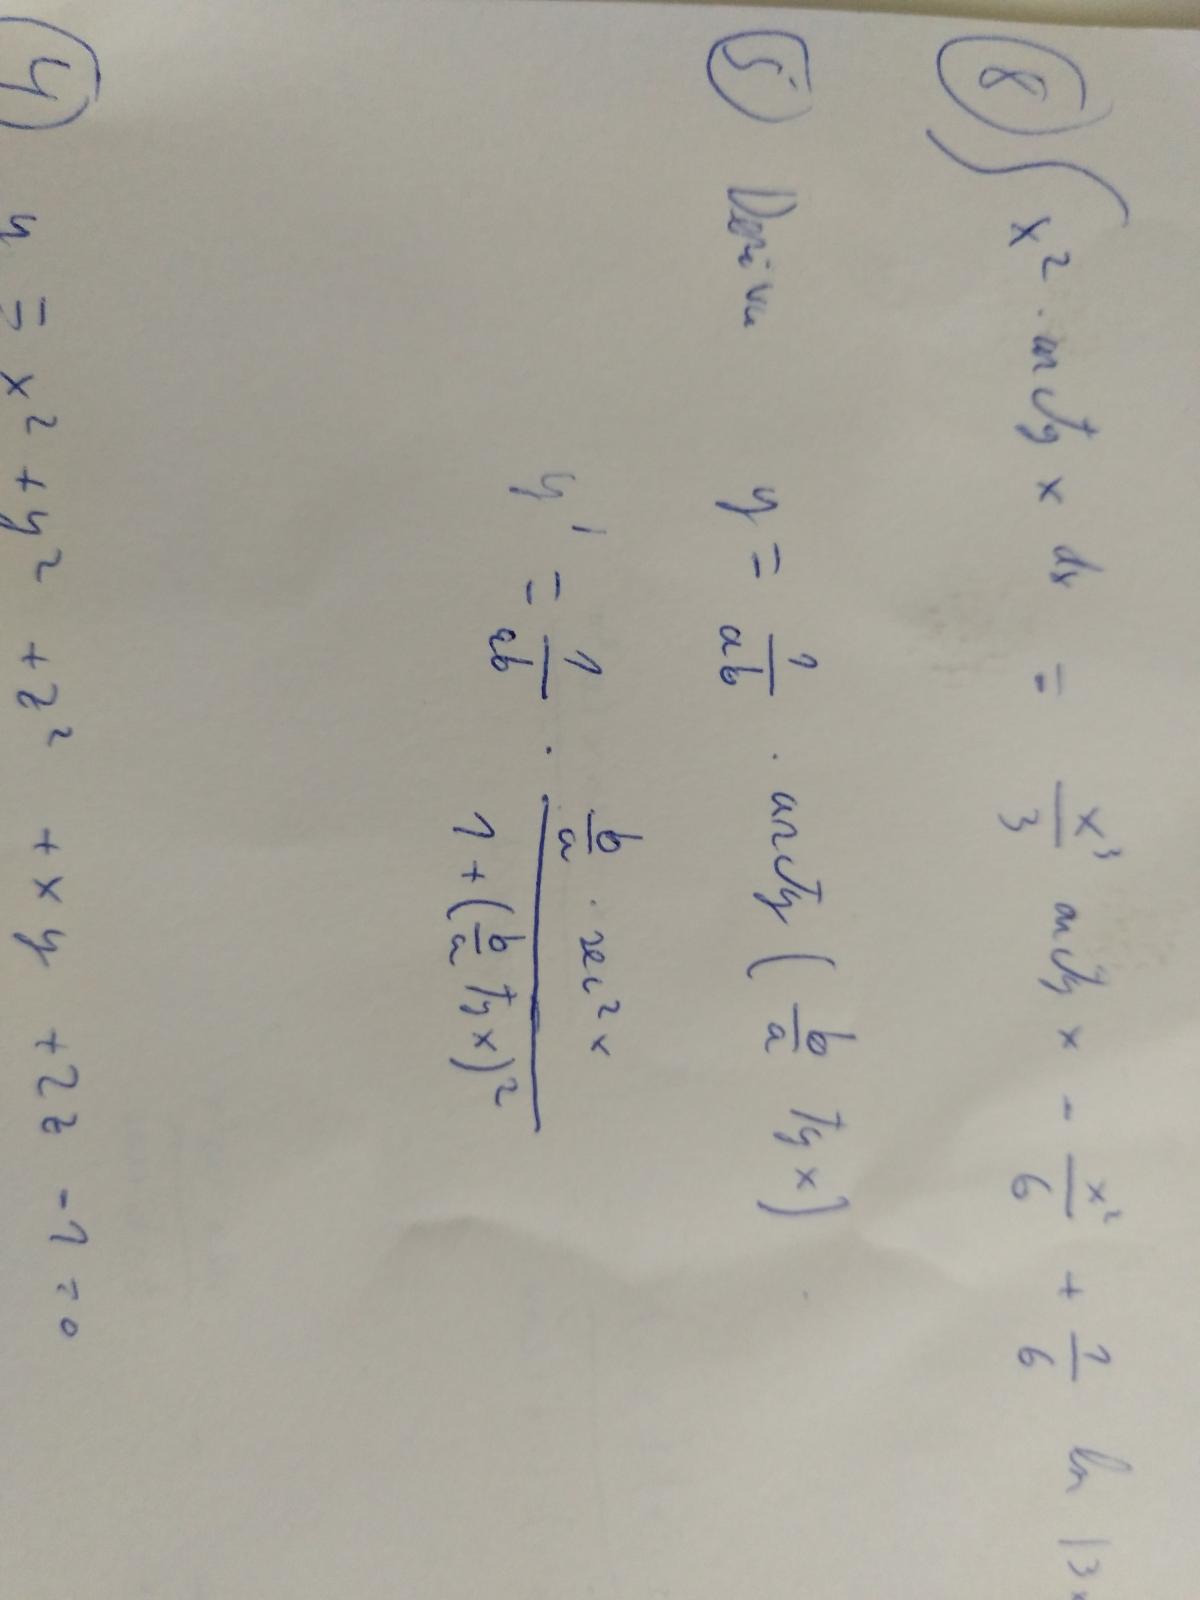 8 ∫ x² · arctg x dx = x³/3 arctg x - x²/6 + 1/6 ln |3x
5 Deriva y = 1/ab · arctg ( b/a tg x )
y' = 1/ab · (b/a · sec² x) / (1 + (b/a tg x)²)
4 y = x² + y² + z² + xy + 2z - 1 = 0